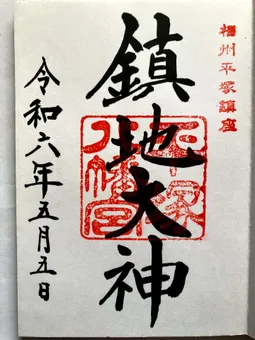 相州平塚鎮座
鎮地大神
平塚八幡宮
令和六年五月五日